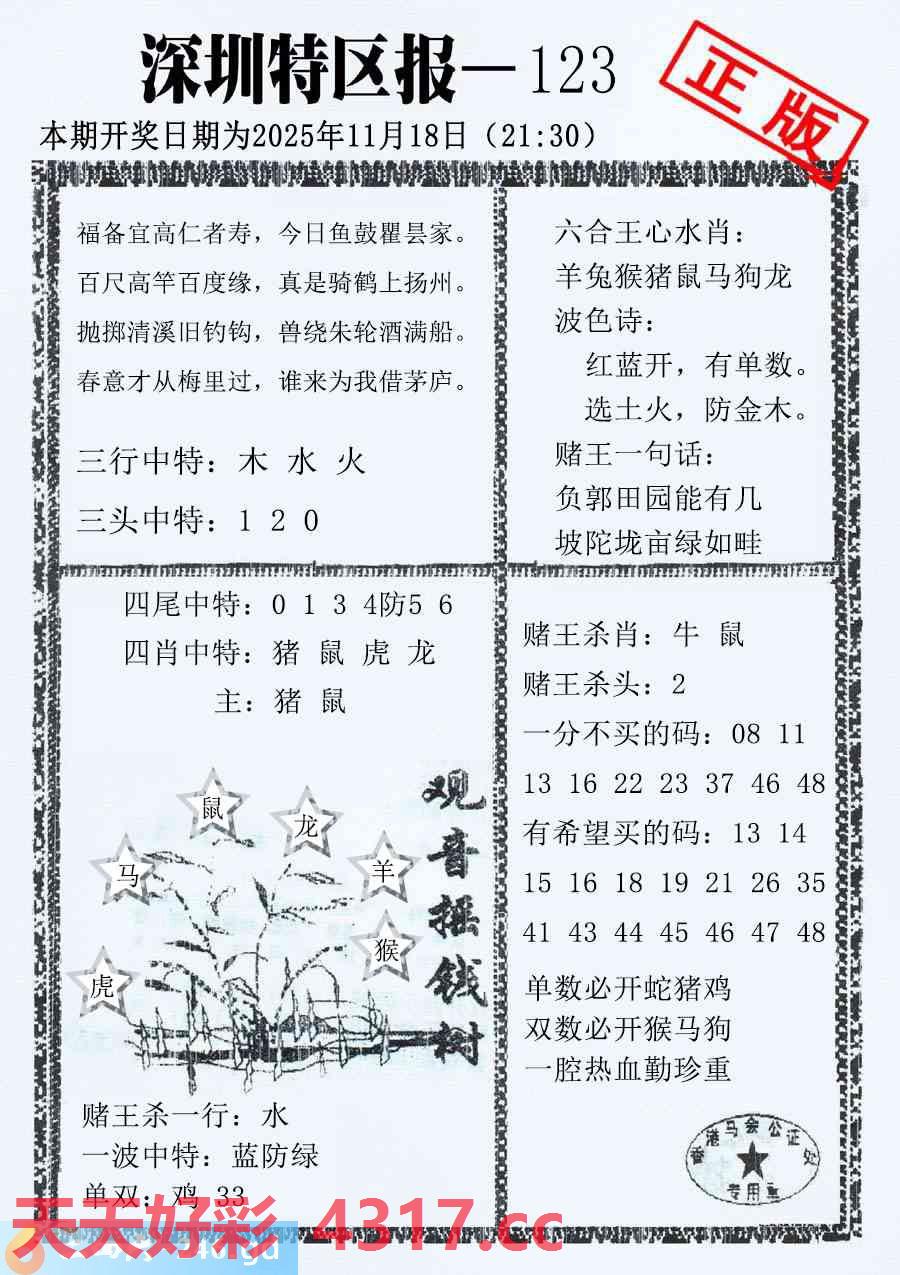 深圳特区报—123
正版
本期开奖日期为2025年11月18日（21:30）
福备宜高仁者寿，今日鱼鼓瞿昙家。
百尺高竿百度缘，真是骑鹤上扬州。
抛掷清溪旧钓钩，兽绕朱轮酒满船。
春意才从梅里过，谁来为我借茅庐。
三行中特：木 水 火
三头中特：1 2 0
六合王心水肖：
羊兔猴猪鼠马狗龙
波色诗：
红蓝开，有单数。
选土火，防金木。
赌王一句话：
负郭田园能有几
坡陀垅亩绿如畦
四尾中特：0 1 3 4防5 6
四肖中特：猪 鼠 虎 龙
主：猪 鼠
观音摇钱树
鼠
龙
马
羊
猴
虎
赌王杀一行：水
一波中特：蓝防绿
单双：鸡 33
赌王杀肖：牛 鼠
赌王杀头：2
一分不买的码：08 11
13 16 22 23 37 46 48
有希望买的码：13 14
15 16 18 19 21 26 35
41 43 44 45 46 47 48
单数必开蛇猪鸡
双数必开猴马狗
一腔热血勤珍重
香港马会公证处
天天好彩 4317.cc